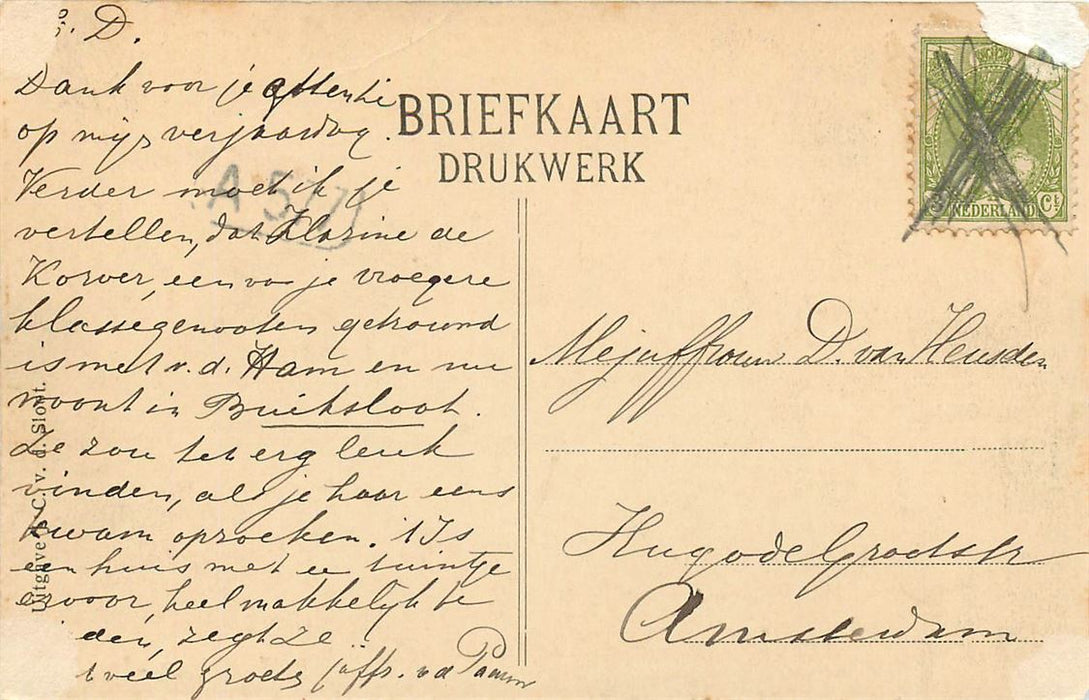 . D.
Dank voor je attentie
op mijn verjaardag.
Verder moet ik je
vertellen, dat Klasine de
Korver, een van je vroegere
klassegenooten getrouwd
is met v. d. Ham en nu
woont in Buiksloot.
Ze zou het erg leuk
vinden, als je haar eens
kwam opzoeken. 't Is
een huis met een tuintje
ervoor, heel makkelijk te
den, zegt ze
veel groets juffr. v d
Uitgave C. v. d. Sloot.
A 577
BRIEFKAART
DRUKWERK
NEDERLAND Ct
Mejuffrouw D. van Heusden
Hugo de Grootstr
Amsterdam